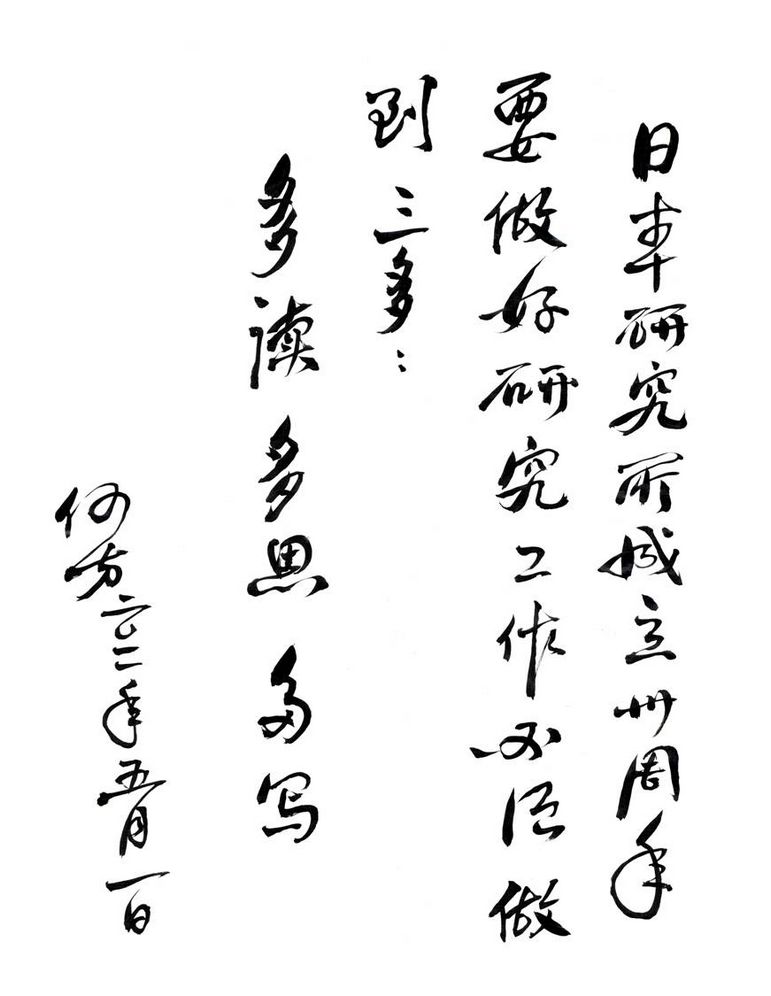 日本研究所成立卅周年
要做好研究工作必须做
到三多：
多读多思多写
何方二〇一一年五月一日